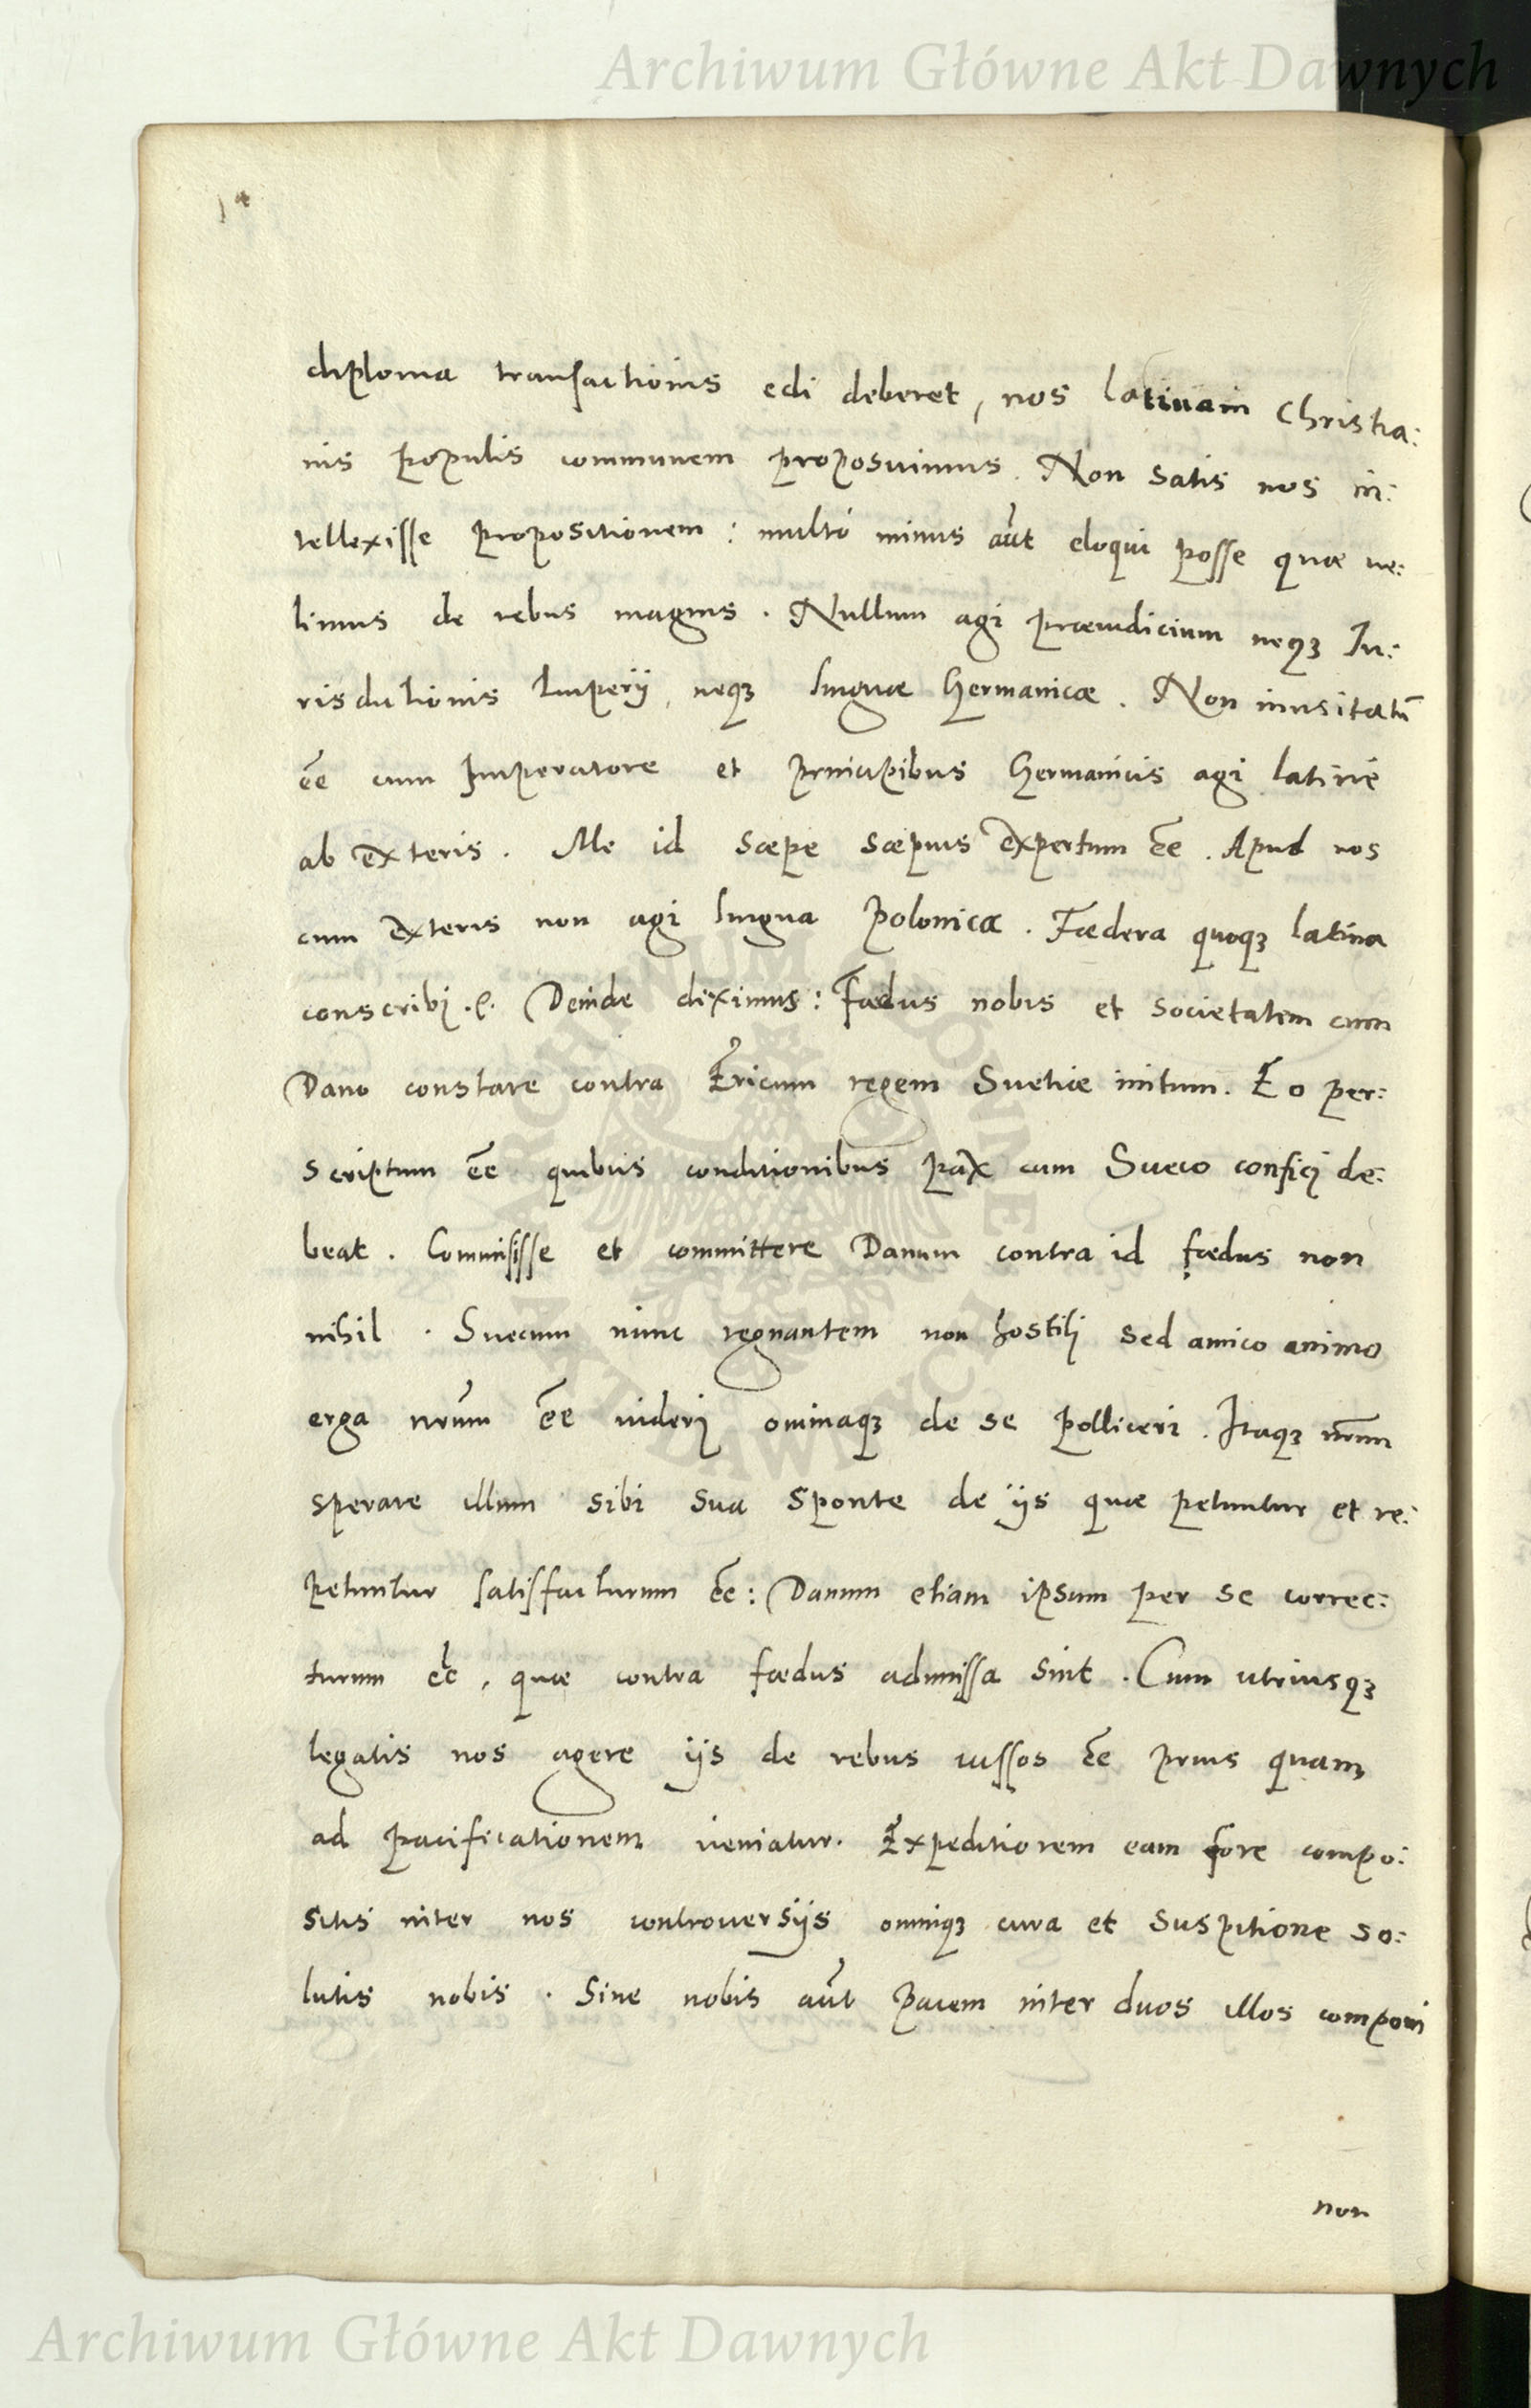 Archiwum Główne Akt Dawnych
diploma transactionis edi deberet, nos latinam Christia:
nis populis communem proposuimus. Non satis nos in:
tellexisse propositionem: multó minus aūt eloqui posse quæ ue:
limus de rebus magnis. Nullum agi præiudicium neqꝫ Iu:
risdictionis Imperij, neqꝫ linguæ Germanicæ. Non inusitatū
ēē cum Imperatore et principibus Germanicis agi latiné
ab exteris. Me id sæpe sæpius expertum ēē. Apud nos
cum exteris non agi lingua Polonica. Fædera quoqꝫ latina
conscribi. Deinde diximus: Fædus nobis et societatem cum
Dano constare contra Ericum regem Suetiæ initum. Eo per:
scriptum ēē quibus conditionibus pax cum Sueco confici de:
beat. Commisisse et committere Danum contra id fædus non
nihil. Suecum nunc regnantem non hostili sed amico animo
erga nrūm ēē uideri omniaqꝫ de se polliceri. Itaqꝫ nrūm
sperare illum sibi sua sponte de ijs quæ petuntur et re:
petuntur satisfacturum ēē: Danum etiam ipsum per se correc:
turum ēē, quæ contra fædus admissa sint. Cum utriusqꝫ
legatis nos agere ijs de rebus iussos ēē prius quam
ad pacificationem ueniatur. Expeditiorem eam fore compo:
sitis inter nos controuersijs omniqꝫ cura et suspitione so:
lutis nobis. Sine nobis aūt pacem inter duos illos componi
non
Archiwum Główne Akt Dawnych